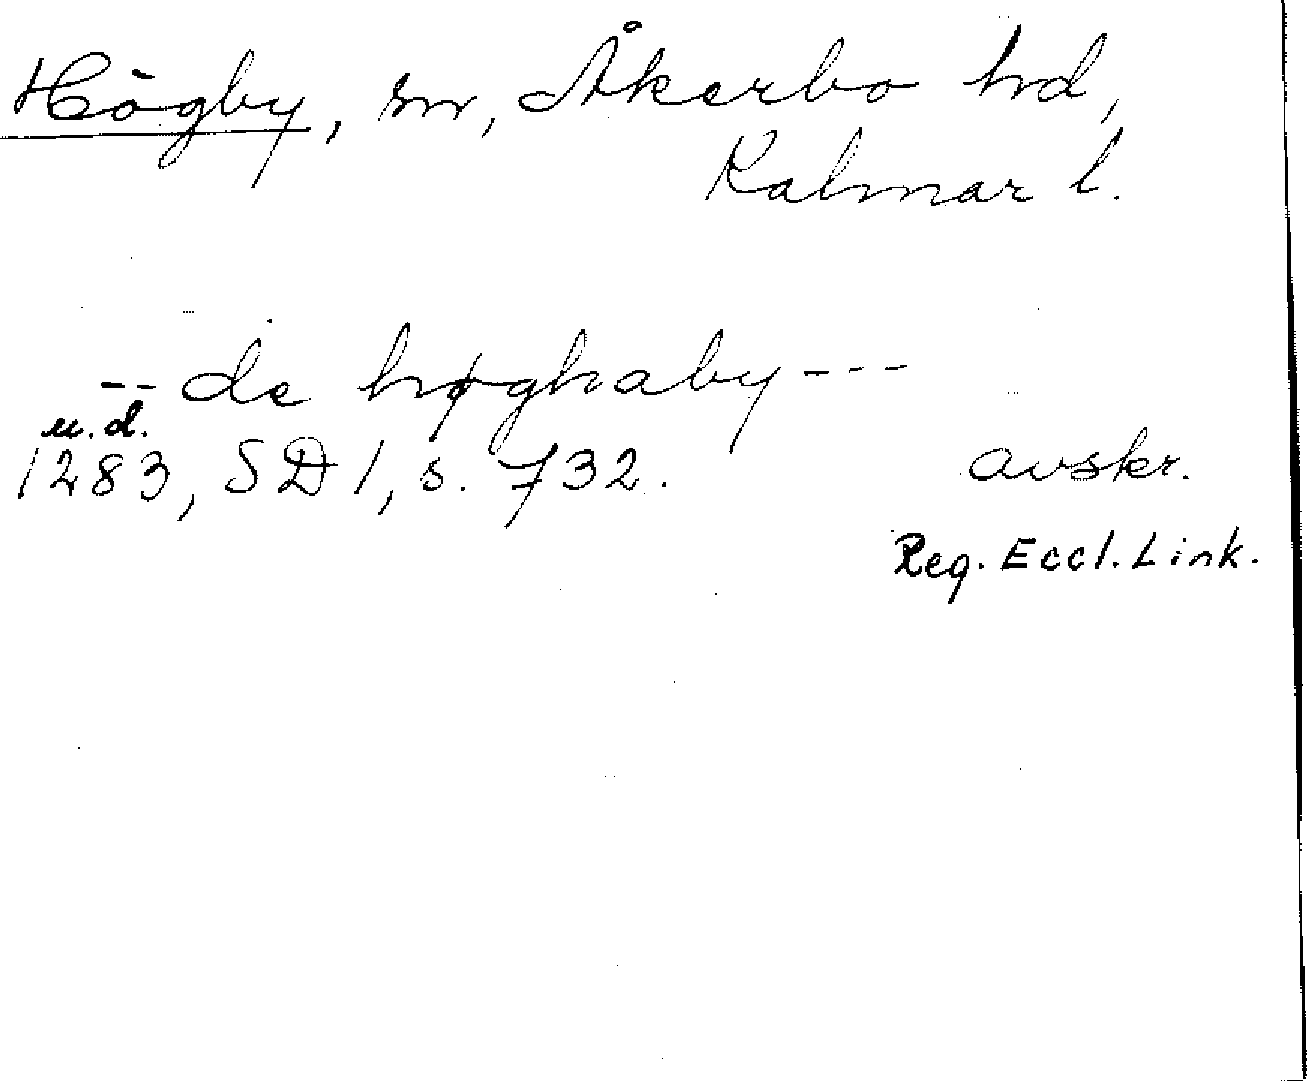 Högby, sn, Åkerbo hd,
Kalmar l.
-- de høghaby ---
u.d.
1283, SD 1, s. 732.
avskr.
Reg. Eccl. Link.